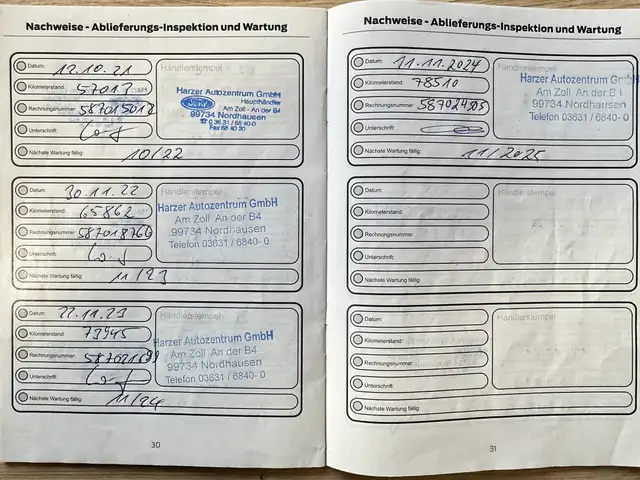 Nachweise - Ablieferungs-Inspektion und Wartung
Datum: 12.10.21
Händlerstempel
Kilometerstand: 57013
Rechnungsnummer:
Unterschrift:
Harzer Autozentrum GmbH
Ford Haupthändler
Am Zoll - An der B4
99734 Nordhausen
☎ 0 36 31 / 68 40-0
Fax 68 40 20
Nächste Wartung fällig: 10/22
Datum: 30.11.22
Händlerstempel
Kilometerstand: 65862
Rechnungsnummer: 587018766
Unterschrift:
Harzer Autozentrum GmbH
Am Zoll An der B4
99734 Nordhausen
Telefon 03631 / 6840- 0
Nächste Wartung fällig: 11/23
Datum: 22.11.23
Händlerstempel
Kilometerstand: 73945
Rechnungsnummer:
Unterschrift:
Harzer Autozentrum GmbH
Am Zoll An der B4
99734 Nordhausen
Telefon 03631 / 6840- 0
Nächste Wartung fällig: 11/24
30
Nachweise - Ablieferungs-Inspektion und Wartung
Datum: 11.11.2024
Händlerstempel
Kilometerstand: 78510
Rechnungsnummer:
Unterschrift:
Harzer Autozentrum GmbH
Am Zoll An der B
99734 Nordhausen
Telefon 03631 / 6840- 0
Nächste Wartung fällig: 11/2025
Datum:
Händlerstempel
Kilometerstand:
Rechnungsnummer:
Unterschrift:
Nächste Wartung fällig:
Datum:
Händlerstempel
Kilometerstand:
Rechnungsnummer:
Unterschrift:
Nächste Wartung fällig:
31